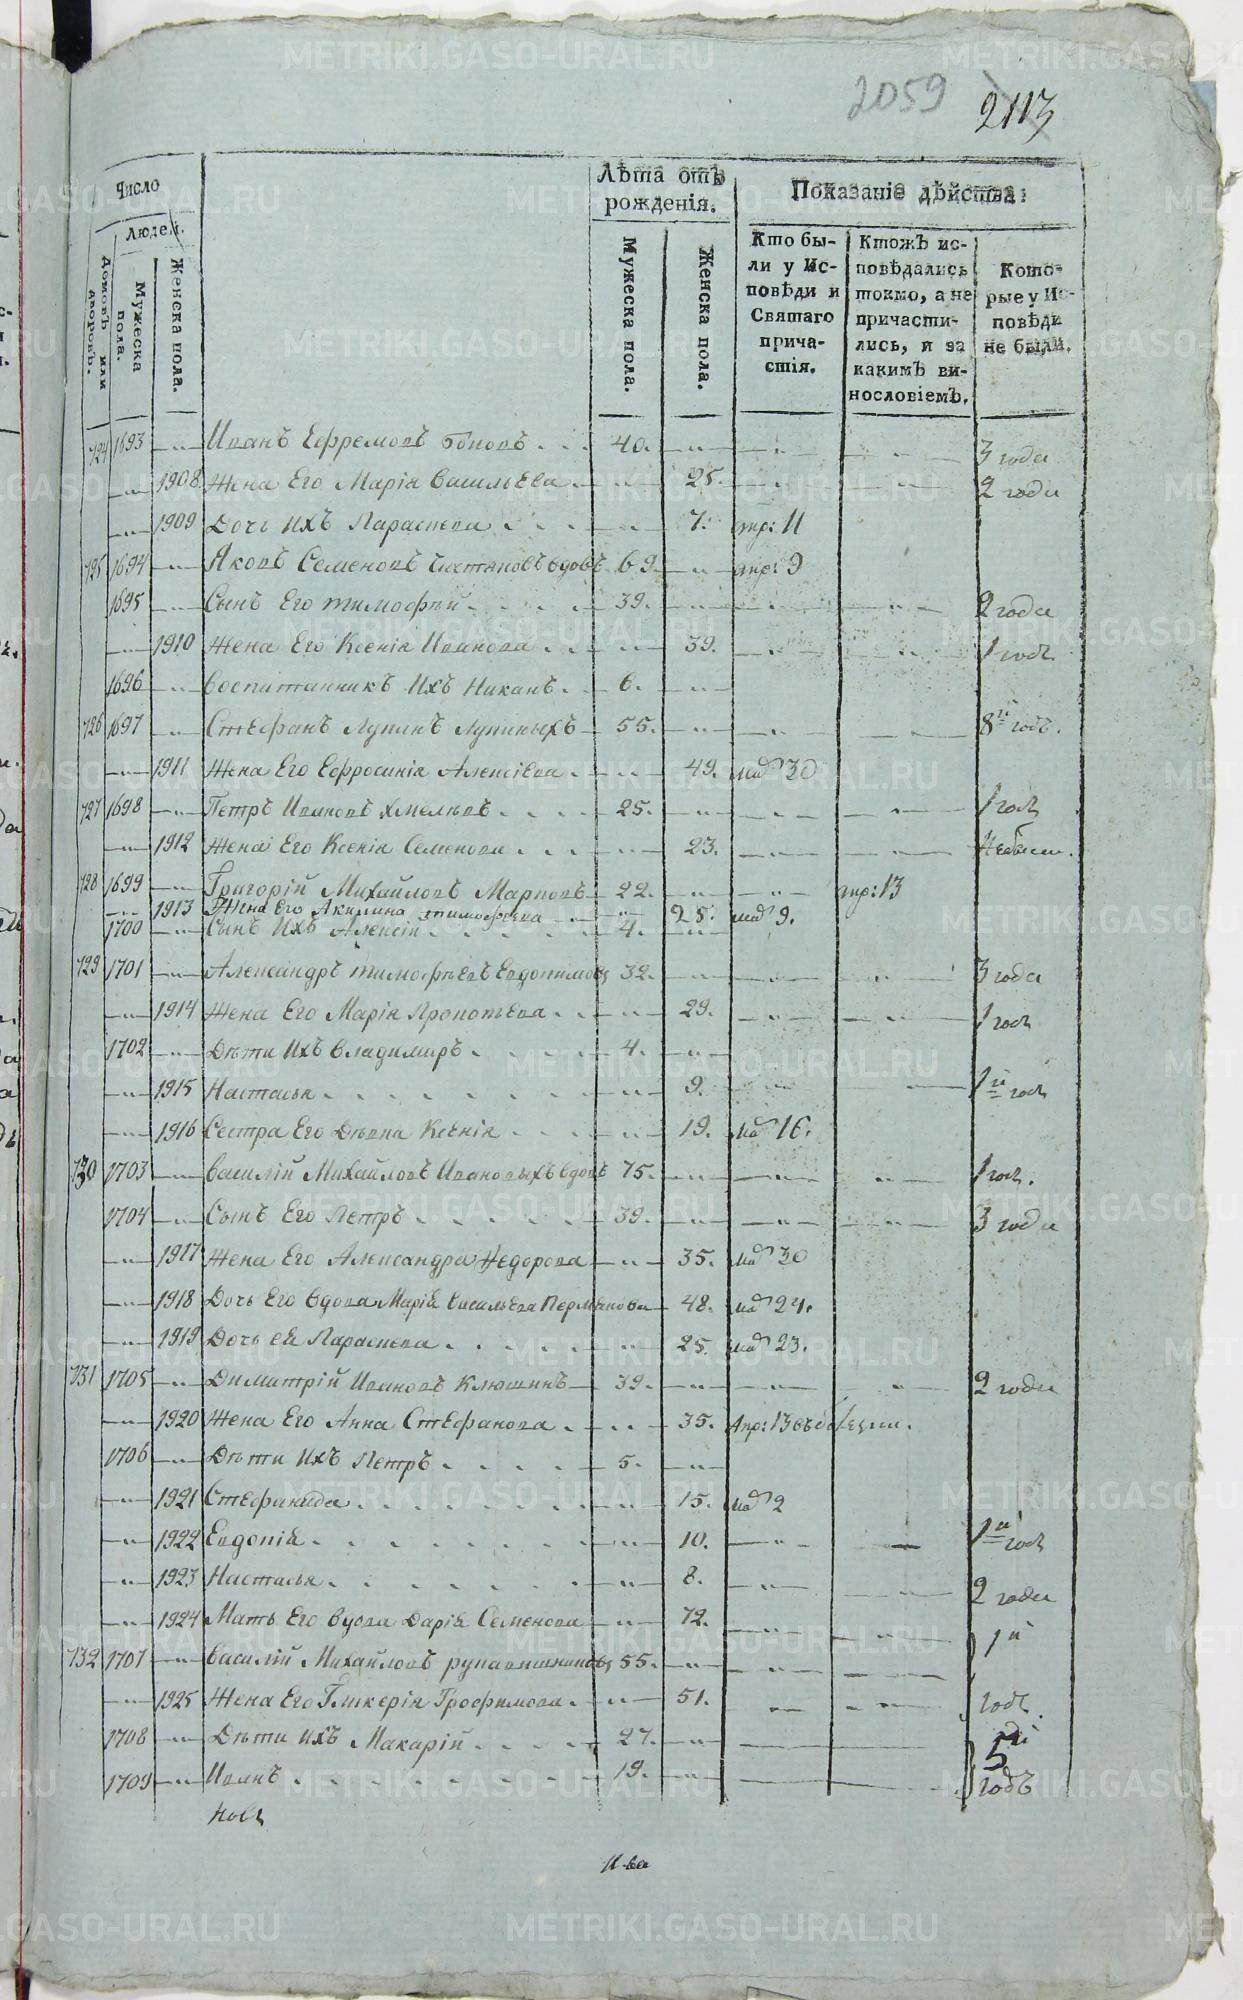 2059 2113
Число
людей.
Домовъ или дворовъ.
Мужеска пола.
Женска пола.
Лѣта отъ рожденія.
Мужеска пола.
Женска пола.
Показаніе дѣйства:
Кто бы-
ли у Ис-
повѣди и
Святаго
прича-
стія.
Ктожъ ис-
повѣдались
токмо, а не
причасти-
лись, и за
какимъ ви-
нословіемъ.
Кото-
рые у Ис-
повѣди
не были.
724 1693 Иванъ Ефремовъ 40. 3 года
1908 Жена Его Марія Васильева 25. 2 года
1909 Дочь Ихъ Параскева 7. апр: 11
725 1694 Яковъ Семеновъ вдовъ 69 апр: 9
1695 Сынъ Его тимофѣй 39. 2 года
1910 Жена Его Ксенія Иванова 39. 1 годъ
1696 Воспитанникъ Ихъ Никанъ 6.
726 1697 Стефанъ Лупинъ Лупиныхъ 55. 8й годъ.
1911 Жена Его Ефросинія Алексіева 49. маѣ 30
727 1698 Петръ Ивановъ Хмелевъ 25. 1 годъ
1912 Жена Его Ксенія Семенова 23.
728 1699 Григорій Михайловъ Марковъ 22. апр: 13
1913 Жена Его Акилина тимофѣева 25. маѣ 9.
1700 Сынъ Ихъ Алексій 4.
729 1701 Александръ тимофѣевъ Евдокимовъ 32. 3 года
1914 Жена Его Марія Прокопьева 29. 1 годъ
1702 Дѣти Ихъ Владимиръ 4.
1915 Настасья 9. 1й годъ
1916 Сестра Его Дѣвка Ксенія 19. маѣ 16.
730 1703 Василій Михайловъ Ивановыхъ вдовъ 75. 1 годъ.
1704 Сынъ Его Петръ 39. 3 года
1917 Жена Его Александра Федорова 35. маѣ 30
1918 Дочь Его вдова Марія Васильева Пермякова 48. маѣ 24.
1919 Дочь ея Параскева 25. маѣ 23.
731 1705 Димитрій Ивановъ Клюшинъ 39. 2 года
1920 Жена Его Анна Стефанова 35. Апр: 13
1706 Дѣти Ихъ Петръ 5.
1921 Стефанида 15. маѣ 2
1922 Евдокія 10. 1й годъ
1923 Настасья 8. 2 года
1924 Мать Его вдова Дарія Семенова 72. 1й
732 1707 Василій Михайловъ рукавишниковъ 55.
1925 Жена Его Гликерія Трофимова 51. годъ.
1708 Дѣти Ихъ Макарій 27. 5й
1709 Иванъ 19. годъ
Ива
METRIKI.GASO-URAL.RU